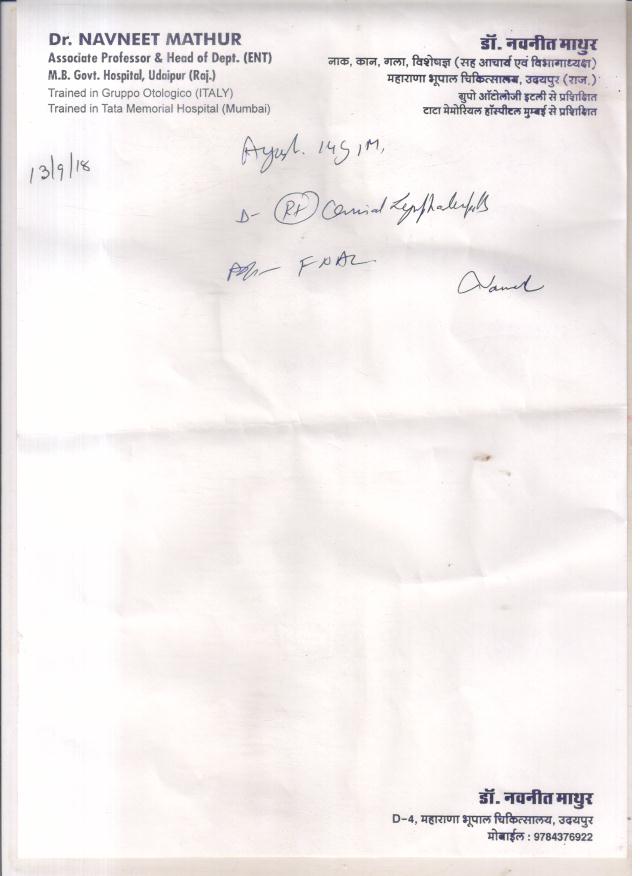 Dr. NAVNEET MATHUR
Associate Professor & Head of Dept. (ENT)
M.B. Govt. Hospital, Udaipur (Raj.)
Trained in Gruppo Otologico (ITALY)
Trained in Tata Memorial Hospital (Mumbai)
डॉ. नवनीत माथुर
नाक, कान, गला, विशेषज्ञ (सह आचार्य एवं विभागाध्यक्ष)
महाराणा भूपाल चिकित्सालय, उदयपुर (राज.)
ग्रुपो ऑटोलोजी इटली से प्रशिक्षित
टाटा मेमोरियल हॉस्पीटल मुम्बई से प्रशिक्षित
13/9/18
Ayush.
D- Rt Cervical
FNAC
डॉ. नवनीत माथुर
D-4, महाराणा भूपाल चिकित्सालय, उदयपुर
मोबाईल : 9784376922